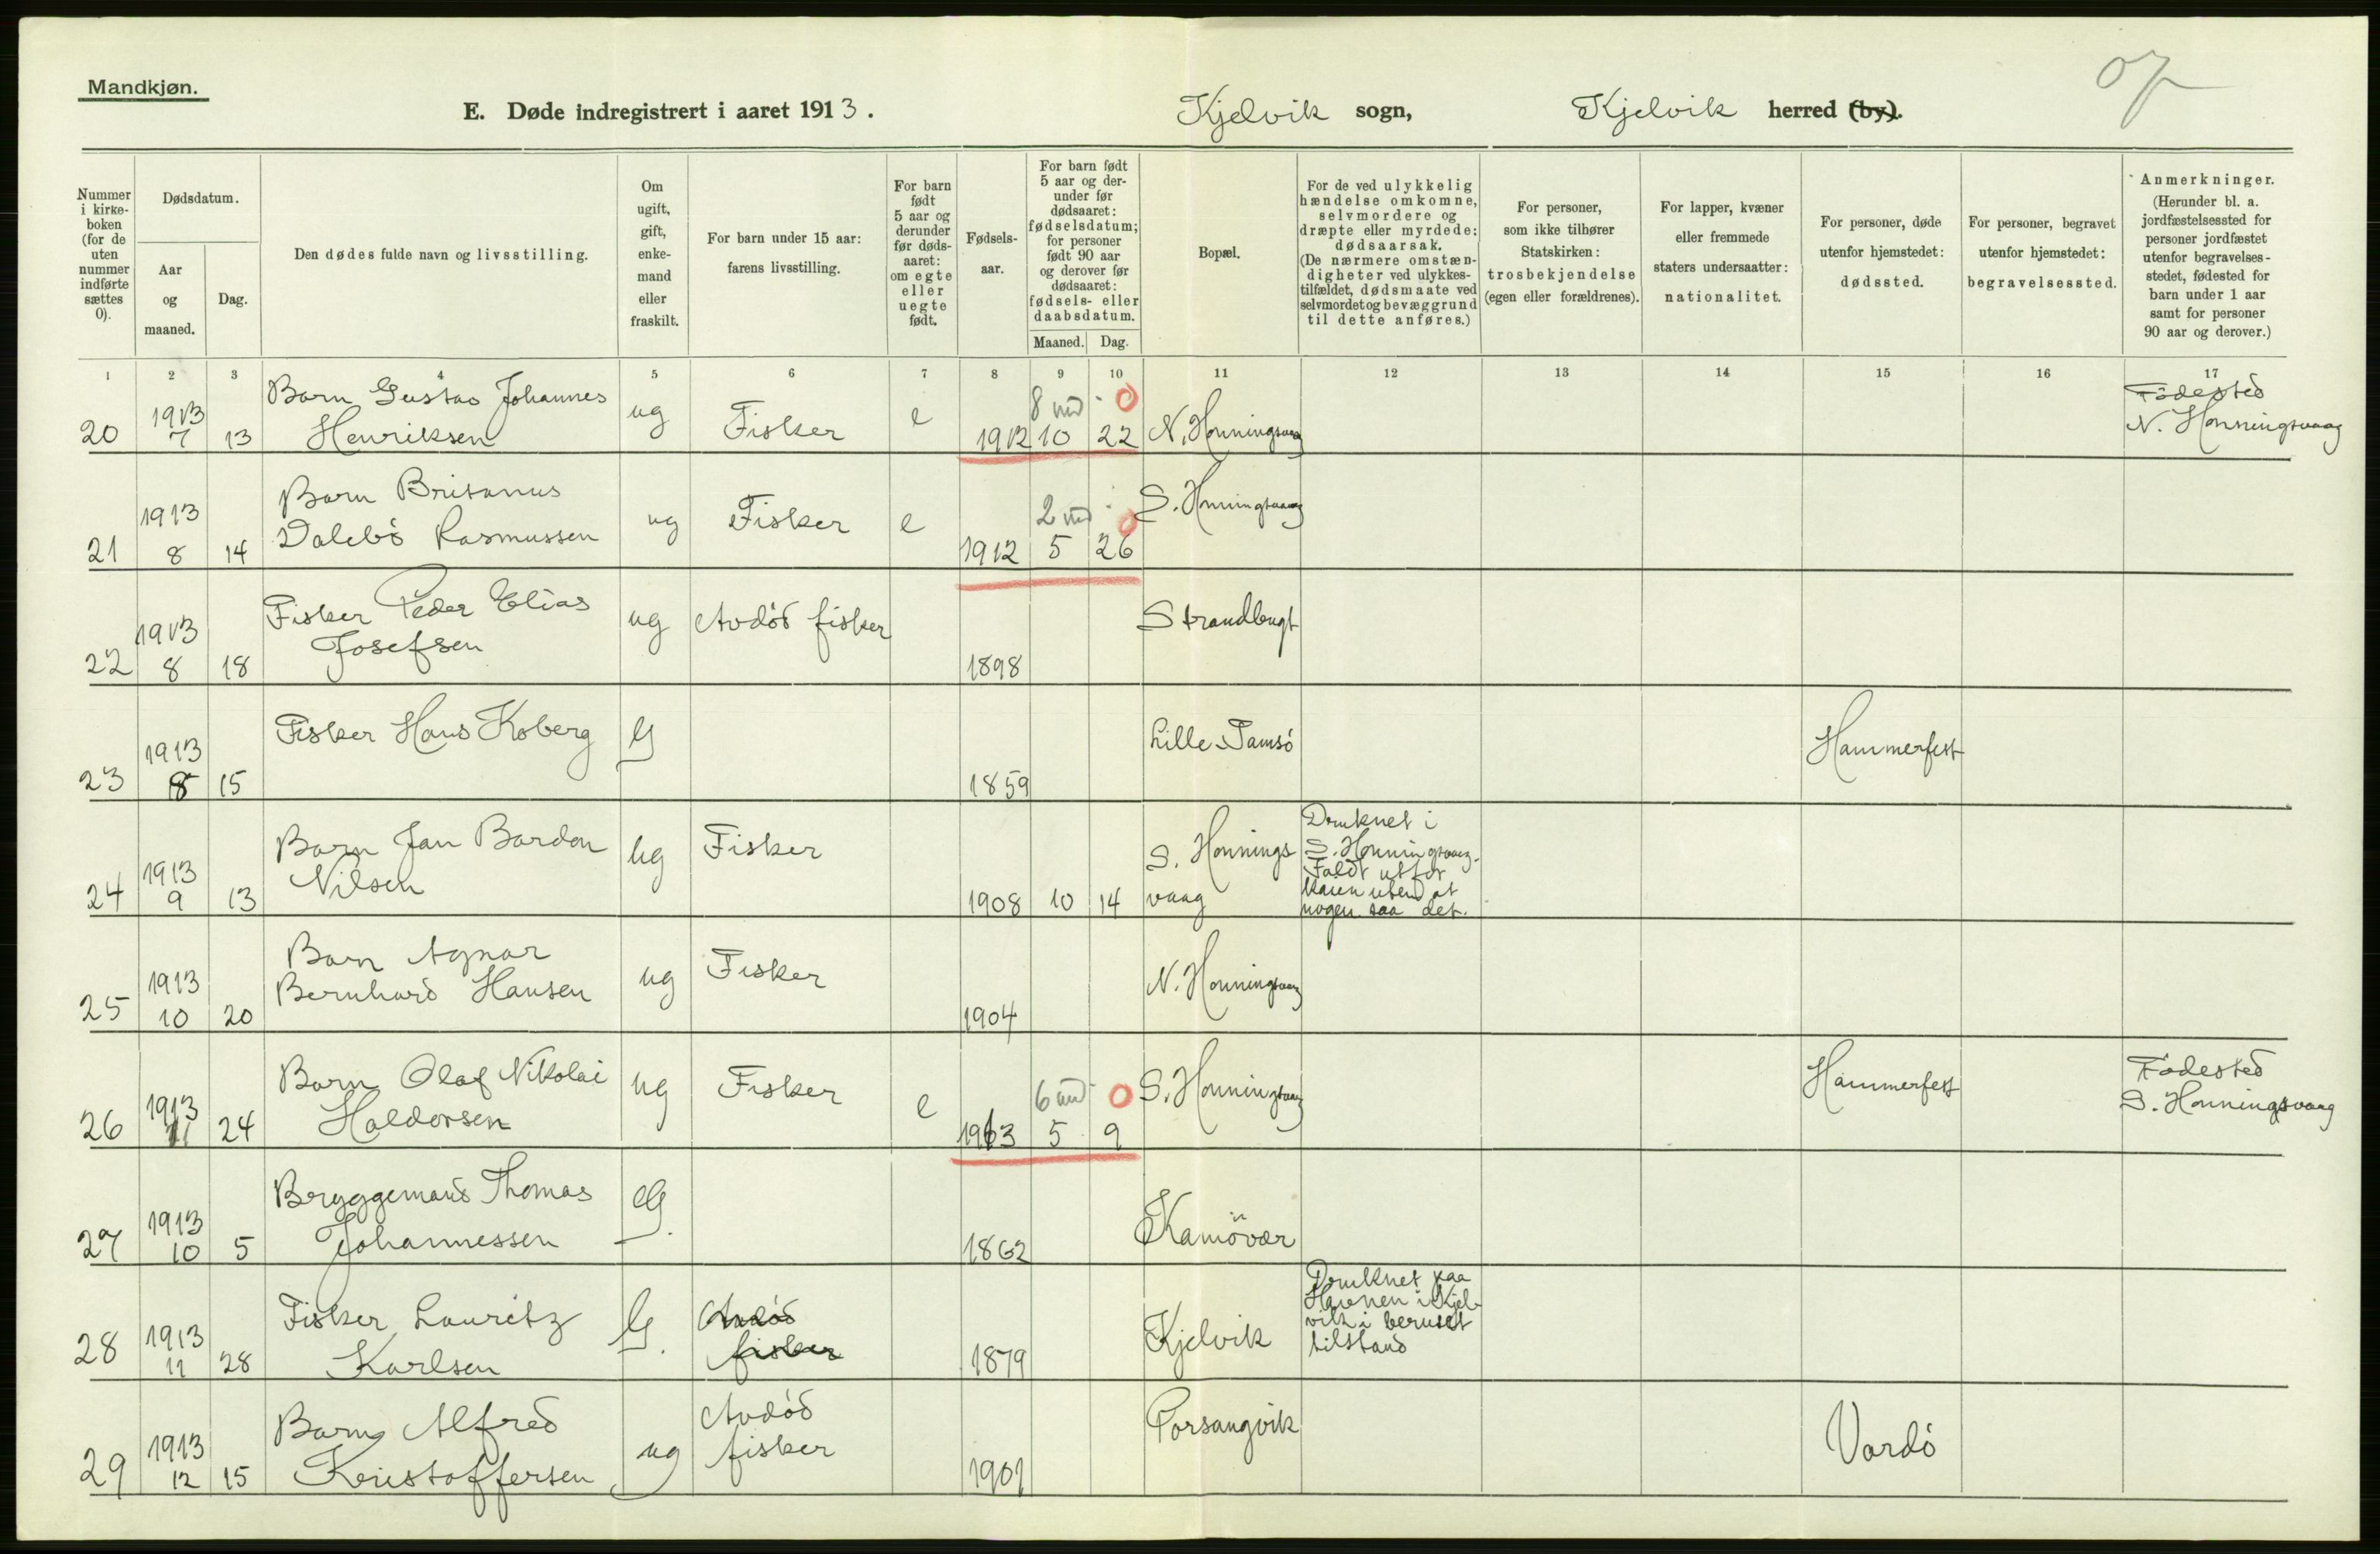 Mandkjøn.
E. Døde indregistrert i aaret 1913.
Kjelvik sogn,
Kjelvik herred (by).
Nummer i kirke-boken (for de uten nummer indførte sættes 0).
Dødsdatum.
Aar og maaned.
Dag.
Den dødes fulde navn og livsstilling.
Om ugift, gift, enke-mand eller fraskilt.
For barn under 15 aar: farens livsstilling.
For barn født 5 aar og derunder før døds-aaret: om egte eller uegte født.
Fødsels-aar.
For barn født 5 aar og der-under før dødsaaret: fødselsdatum; for personer født 90 aar og derover før dødsaaret: fødsels- eller daabsdatum.
Maaned.
Dag.
Bopæl.
For de ved ulykkelig hændelse omkomne, selvmordere og dræpte eller myrdede: dødsaarsak. (De nærmere omstæn-digheter ved ulykkes-tilfældet, dødsmaate ved selvmordet og bevæggrund til dette anføres.)
For personer, som ikke tilhører Statskirken: trosbekjendelse (egen eller forældrenes).
For lapper, kvæner eller fremmede staters undersaatter: nationalitet.
For personer, døde utenfor hjemstedet: dødssted.
For personer, begravet utenfor hjemstedet: begravelsessted.
Anmerkninger. (Herunder bl. a. jordfæstelsessted for personer jordfæstet utenfor begravelses-stedet, fødested for barn under 1 aar samt for personer 90 aar og derover.)
1 2 3 4 5 6 7 8 9 10 11 12 13 14 15 16 17
20 1913 7 13 Barn Gustav Johannes Henriksen ug Fisker e 1912 8 md 0 10 22 N. Honningsvaag Födested N. Honningsvaag
21 1913 8 14 Barn Britanus Dalebö Rasmussen ug Fisker e 1912 2 md 0 5 26 S. Honningsvaag
22 1913 8 18 Fisker Peder Elias Josefsen ug Avdöd fisker 1898 Strandbugt
23 1913 8 15 Fisker Hans Koberg G 1859 Lille Tamsö Hammerfest
24 1913 9 13 Barn Jan Bardon Nilsen Ug Fisker 1908 10 14 S. Honningsvaag Druknet i S. Honningsvaag. Faldt utfor kaien uten at nogen saa det.
25 1913 10 20 Barn Agnar Bernhard Hansen ug Fisker 1904 N. Honningsvaag
26 1913 11 24 Barn Olaf Nikolai Haldorsen ug Fisker e 1913 6 md 0 5 9 S. Honningsvaag Hammerfest Födested S. Honningsvaag
27 1913 10 5 Bryggemand Thomas Johannessen G. 1862 Kamövær
28 1913 11 28 Fisker Lauritz Karlsen G. Avdöd fisker 1879 Kjelvik Druknet paa Havnen i Kjelvik i beruset tilstand
29 1913 12 15 Barn Alfred Kristoffersen ug Avdöd fisker 1901 Porsangvik Vardö